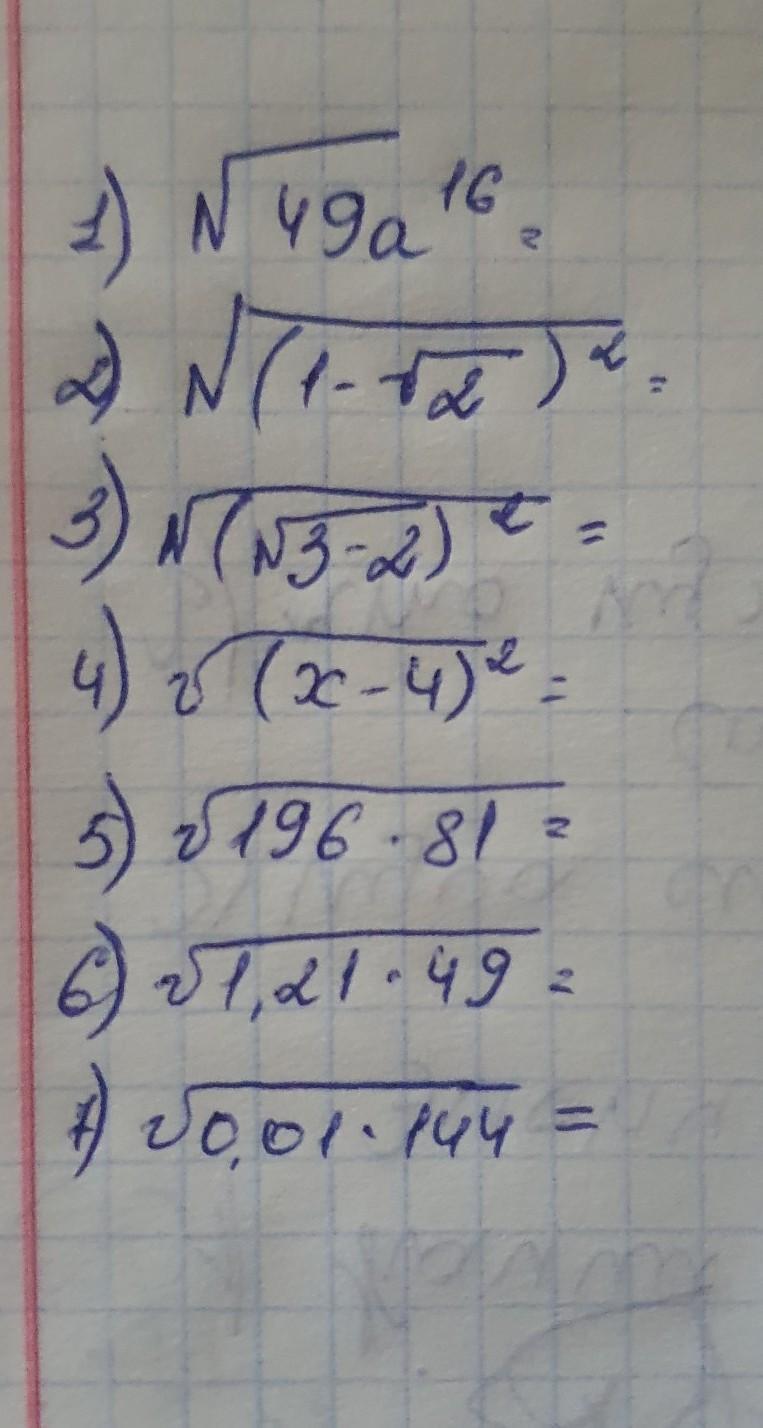 1) √49a¹⁶ =
2) √(1-√2)² =
3) √(√3-2)² =
4) √(x-4)² =
5) √196·81 =
6) √1,21·49 =
7) √0,01·144 =